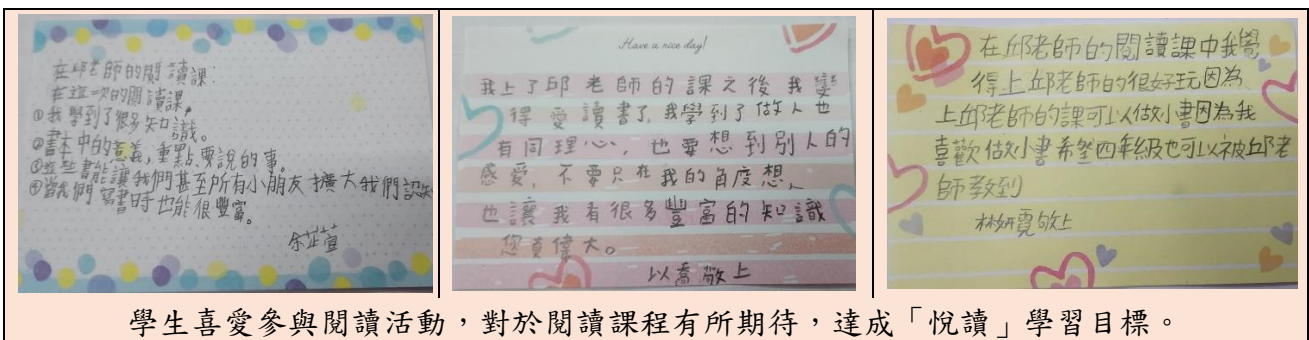 在邱老師的閱讀課:
在這一次的閱讀課,
①我學到了很多知識。
②書本中的意義,重點,要說的事。
③這些書能讓我們甚至所有小朋友擴大我們認知
④當我們寫書時也能很豐富。
余芷萱
Have a nice day!
我上了邱老師的課之後我變
得愛讀書了,我學到了做人也
有同理心,也要想到別人的
感受,不要只在我的角度想,
也讓我有很多豐富的知識
您真偉大。
以喬敬上
在邱老師的閱讀課中我覺
得上邱老師的很好玩因為
上邱老師的課可以做小書因為我
喜歡做小書希望四年級也可以被邱老
師教到
林妍霓敬上
學生喜愛參與閱讀活動,對於閱讀課程有所期待,達成「悅讀」學習目標。